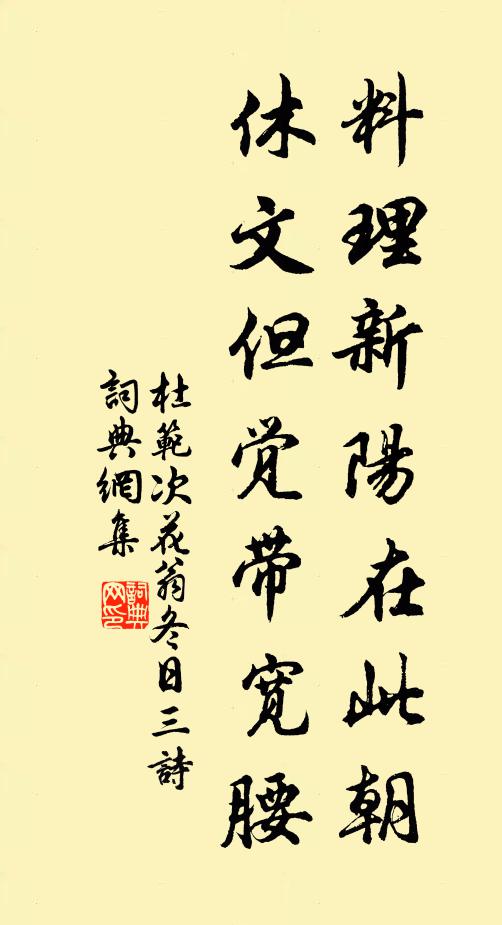 料理新陽在此朝
休文但覺带寬腰
杜範次花翁冬日三詩
詞典網集
詞典网印